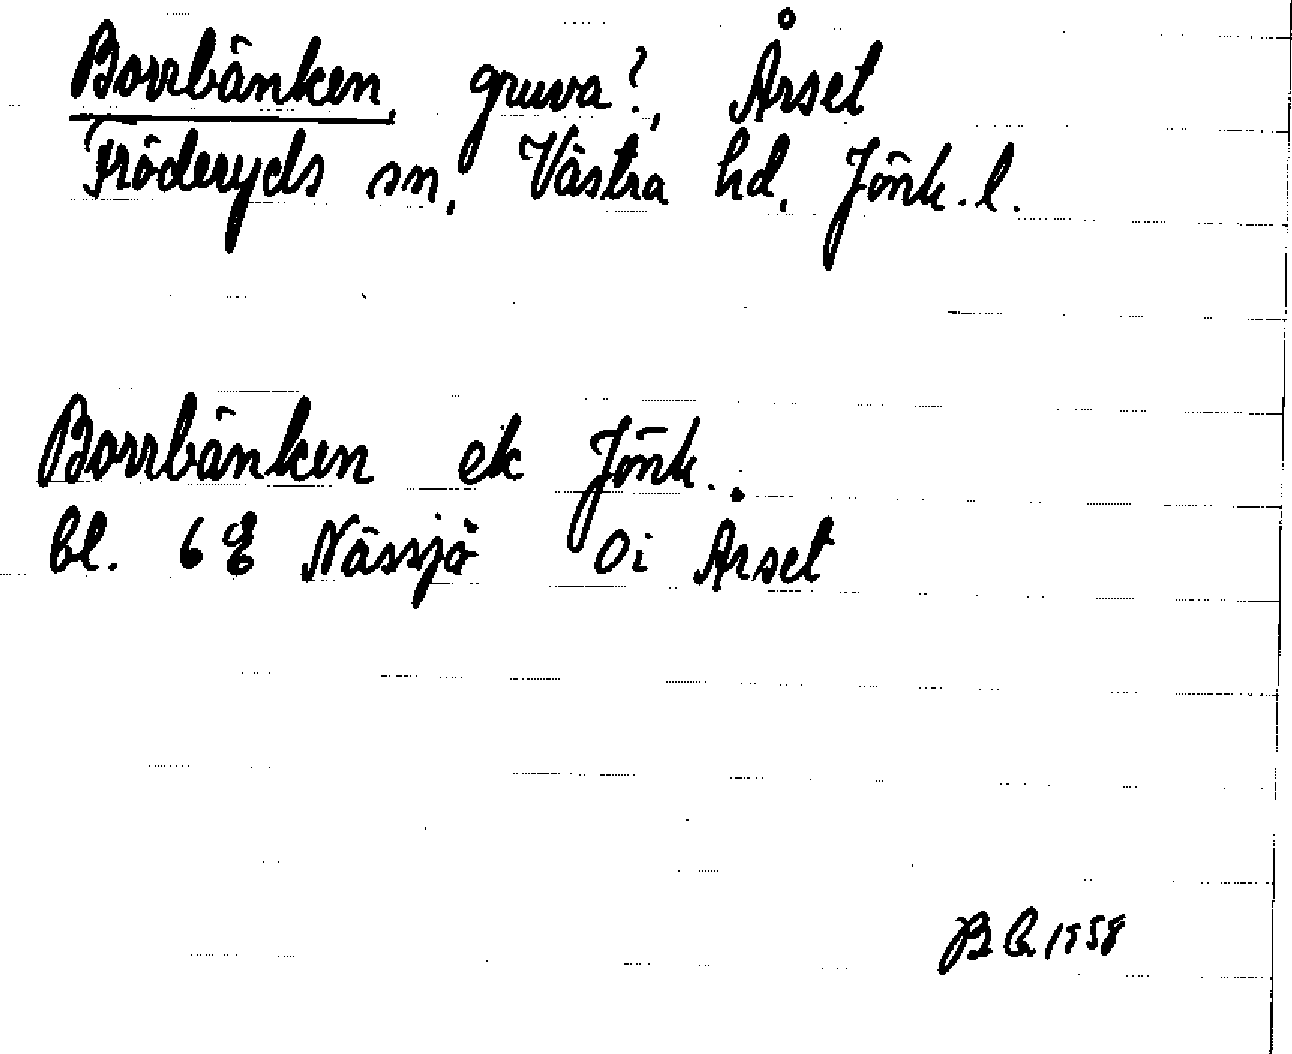 Borrbänken, gruva?, Årset
Fröderyds sn, Västra hd, Jönk. l.
Borrbänken ek Jönk.
bl. 6 E Nässjö Oi Årset
1958